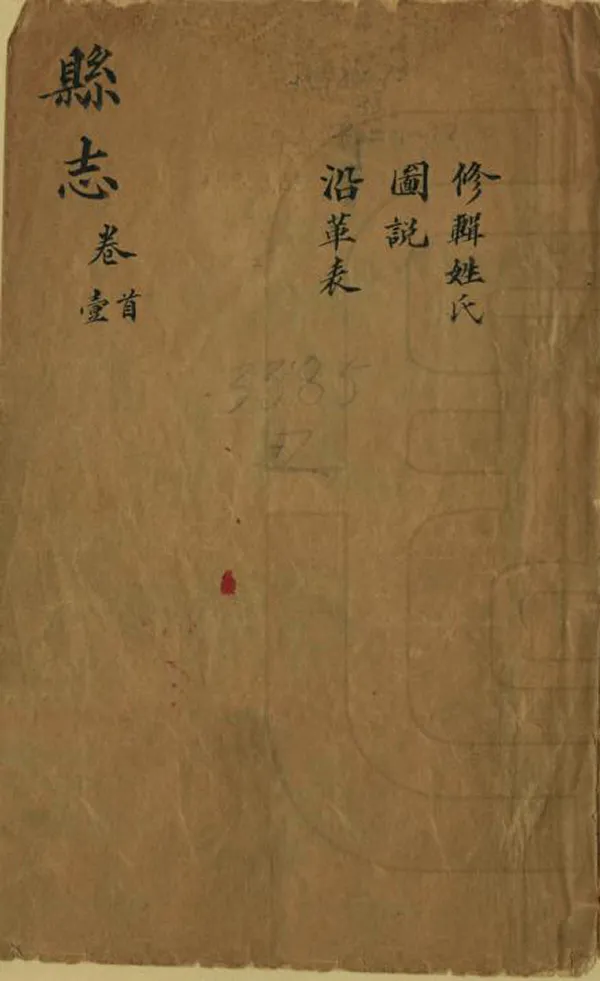 修輯姓氏
圖説
沿革表
縣志 卷首壹
3385